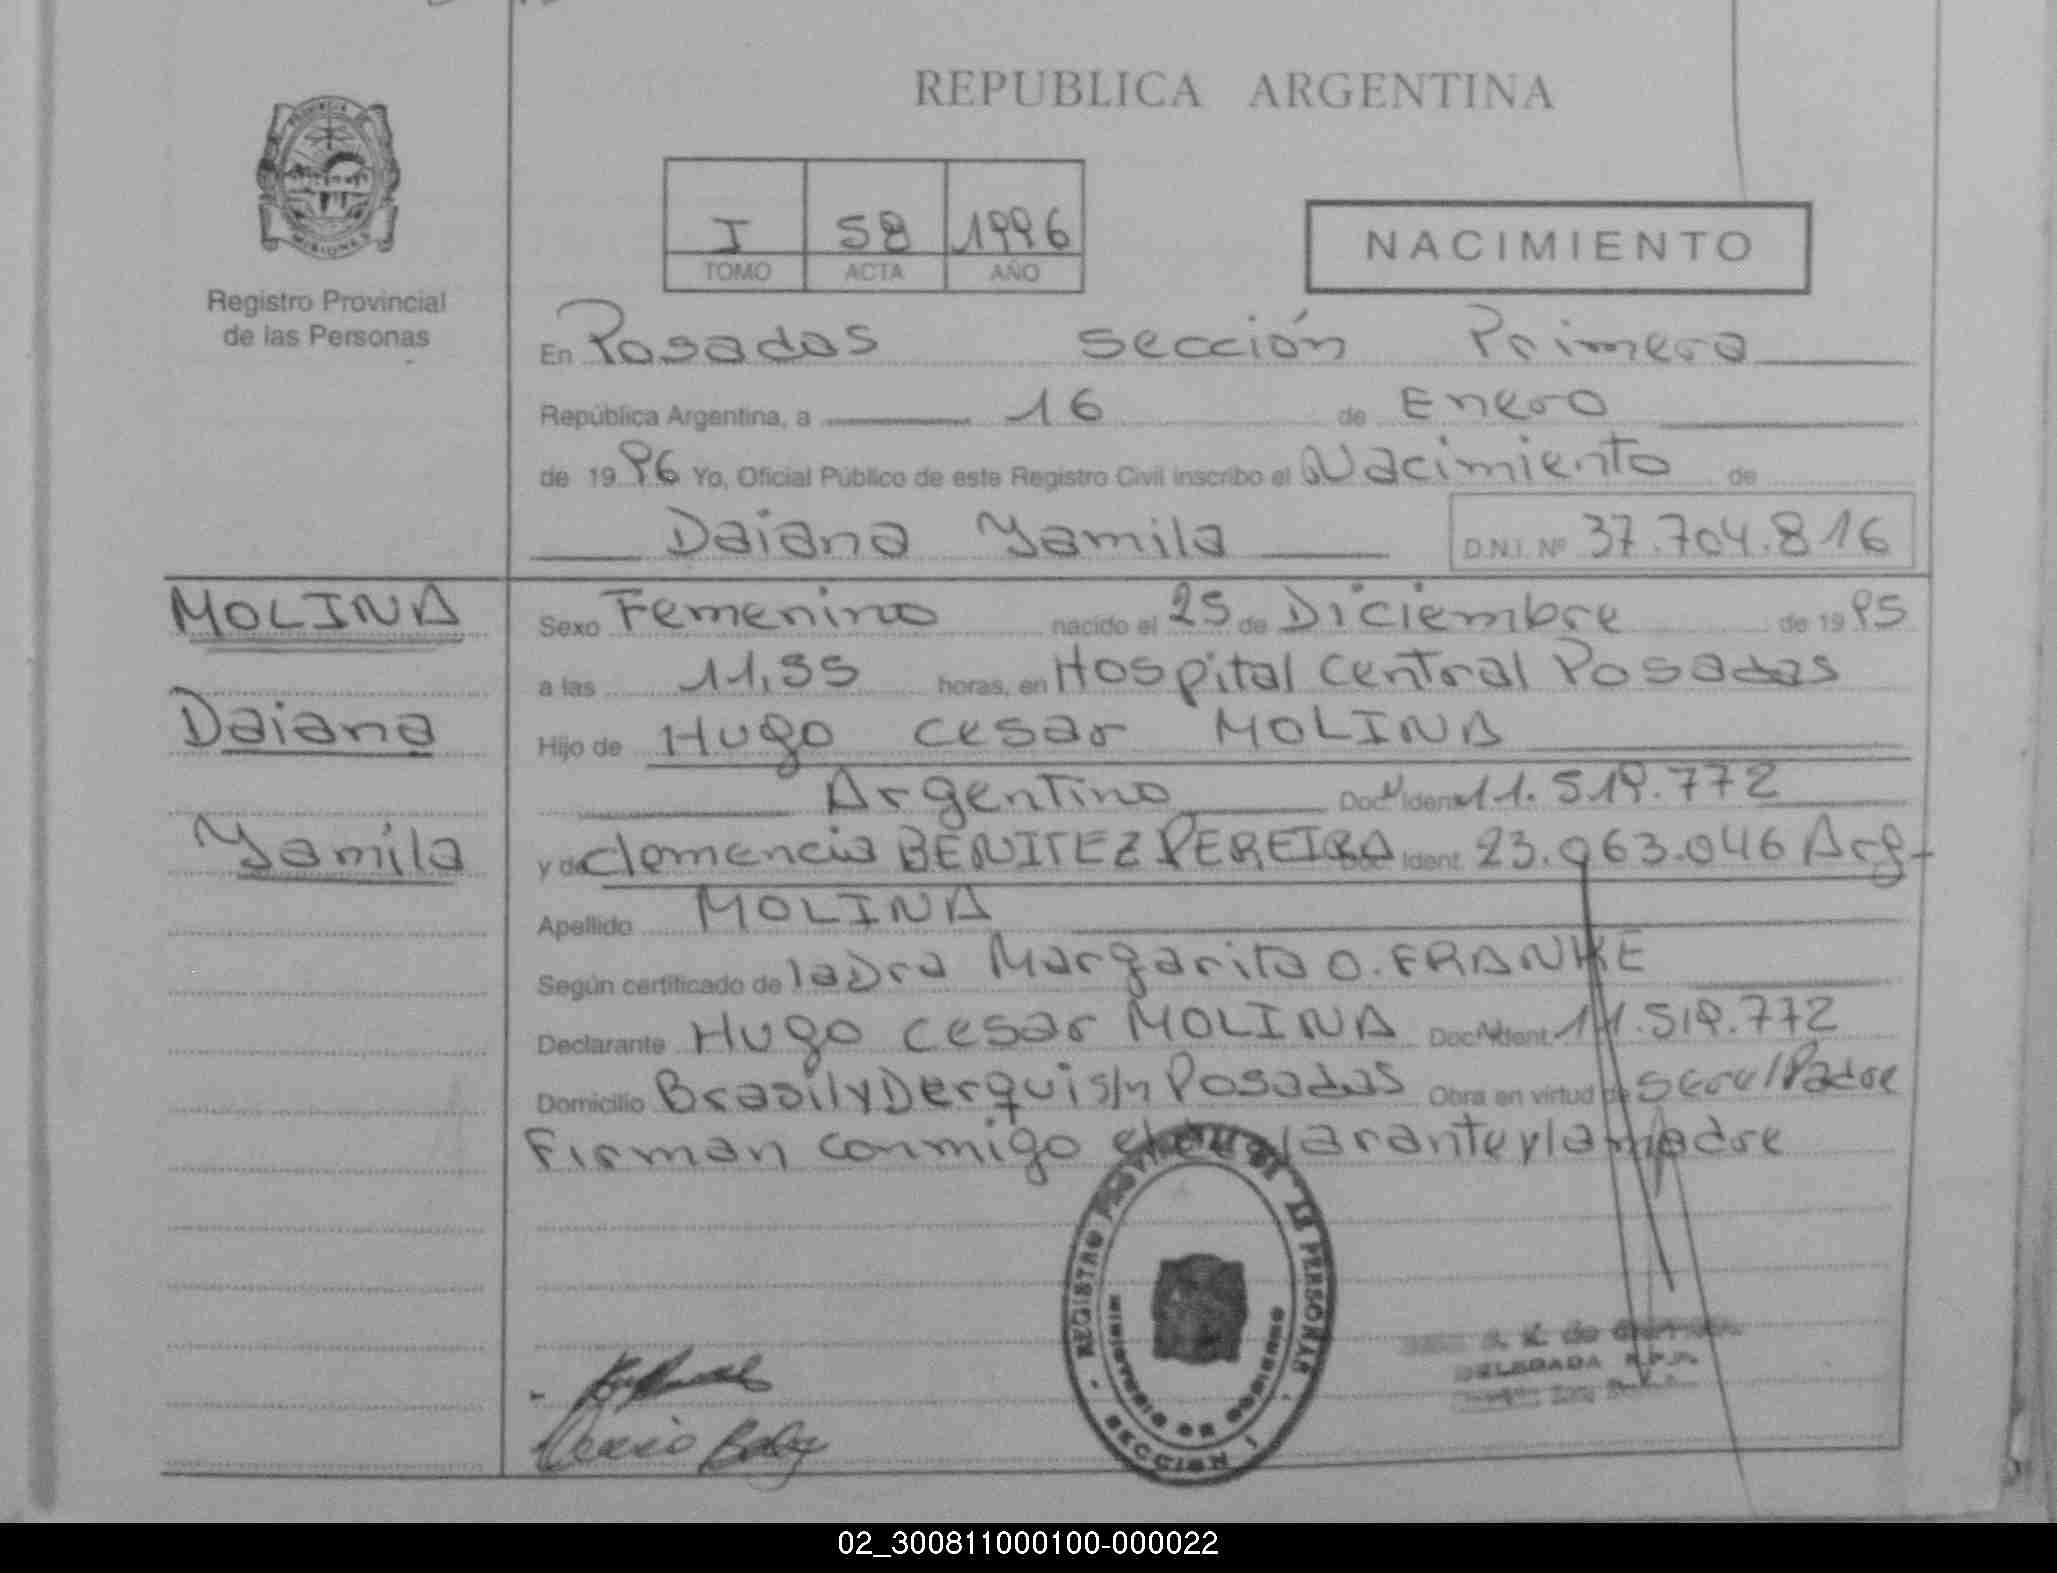 REPUBLICA ARGENTINA
PROVINCIA DE
MISIONES
Registro Provincial
de las Personas
I 58 1996
TOMO ACTA AÑO
NACIMIENTO
En Posadas sección Primera
República Argentina, a 16 de Enero
de 1996 Yo, Oficial Público de este Registro Civil inscribo el Nacimiento de
Daiana Yamila D.N.I. Nº 37.704.816
MOLINA
Daiana
Yamila
Sexo Femenino nacido el 25 de Diciembre de 1995
a las 11,35 horas, en Hospital Central Posadas
Hijo de Hugo Cesar MOLINA
Argentino Doc N Ident 11.519.772
y de Clemencia BENITEZ PEREIRA Doc Ident. 23.963.046 Arg
Apellido MOLINA
Según certificado de la Dra Margarita O. FRANKE
Declarante Hugo Cesar MOLINA Doc N Ident 11.519.772
Domicilio Brasil y Derqui s/n Posadas Obra en virtud de ser el Padre
Firman conmigo el declarante y la madre
REGISTRO PROVINCIAL DE LAS PERSONAS
MINISTERIO DE GOBIERNO
SECCION 1
DELEGADA R.P.P.
02_300811000100-000022